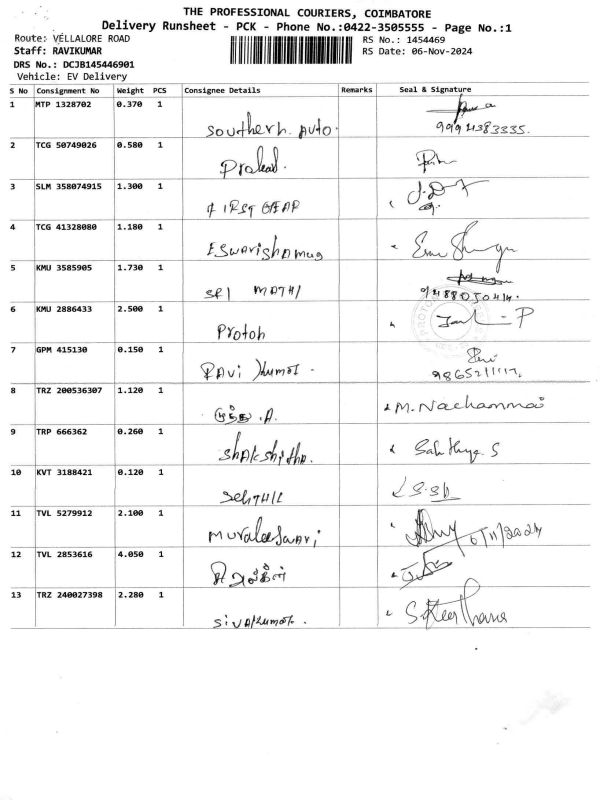 THE PROFESSIONAL COURIERS, COIMBATORE
Delivery Runsheet - PCK - Phone No.:0422-3505555 - Page No.:1
Route: VELLALORE ROAD
RS No.: 1454469
Staff: RAVIKUMAR
RS Date: 06-Nov-2024
DRS No.: DCJB145446901
Vehicle: EV Delivery
S No Consignment No Weight PCS Consignee Details Remarks Seal & Signature
1 MTP 1328702 0.370 1
Southern. Auto.
2 TCG 50749026 0.580 1
3 SLM 358074915 1.300 1
FIRST GEAR
4 TCG 41328080 1.180 1
5 KMU 3585905 1.730 1
SRI MATHI
6 KMU 2886433 2.500 1
Proton
7 GPM 415130 0.150 1
Ravi Kumar.
8 TRZ 200536307 1.120 1
M. Nachammai
9 TRP 666362 0.260 1
Shakshitha.
10 KVT 3188421 0.120 1
Senthil
11 TVL 5279912 2.100 1
6/11/2024
12 TVL 2853616 4.050 1
13 TRZ 240027398 2.280 1
Sivakumar.